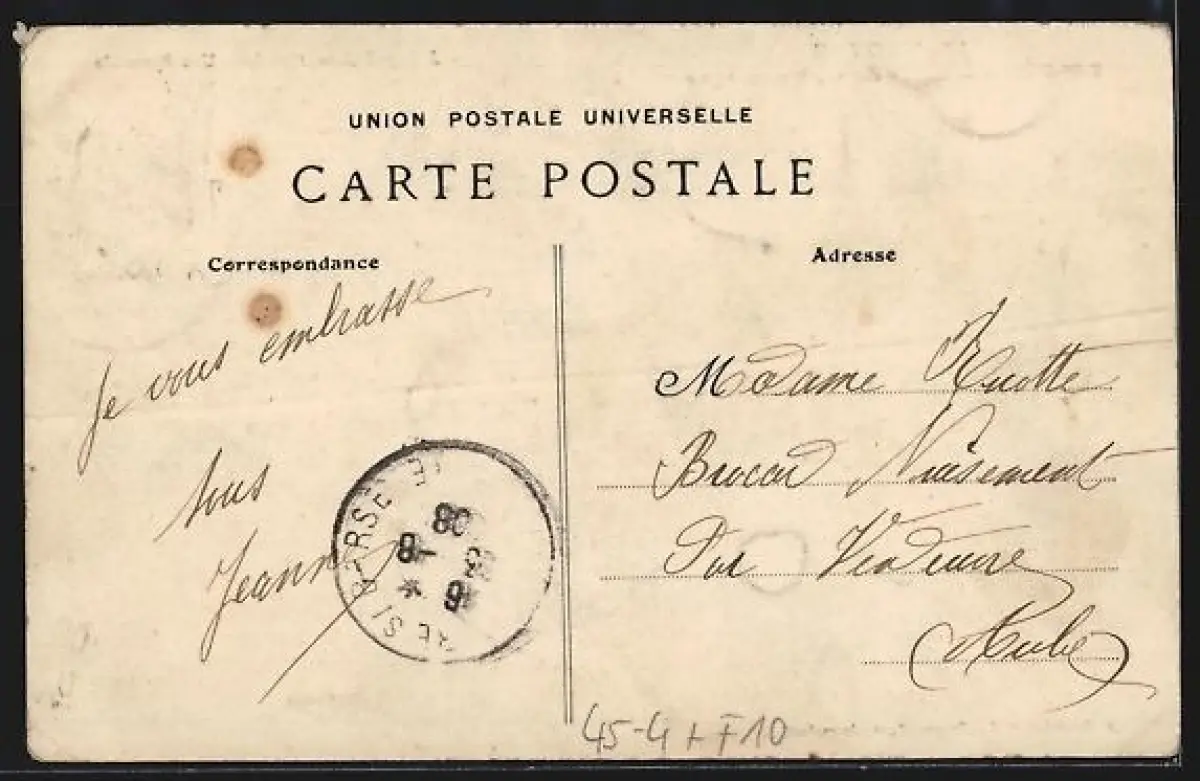 UNION POSTALE UNIVERSELLE
CARTE POSTALE
Correspondance
Je vous embrasse
tous
Jeanne
Adresse
Madame Ruotte
Brocard Nuisement
Par Vendeuvre
Aube
08
8-
45-4 + F10